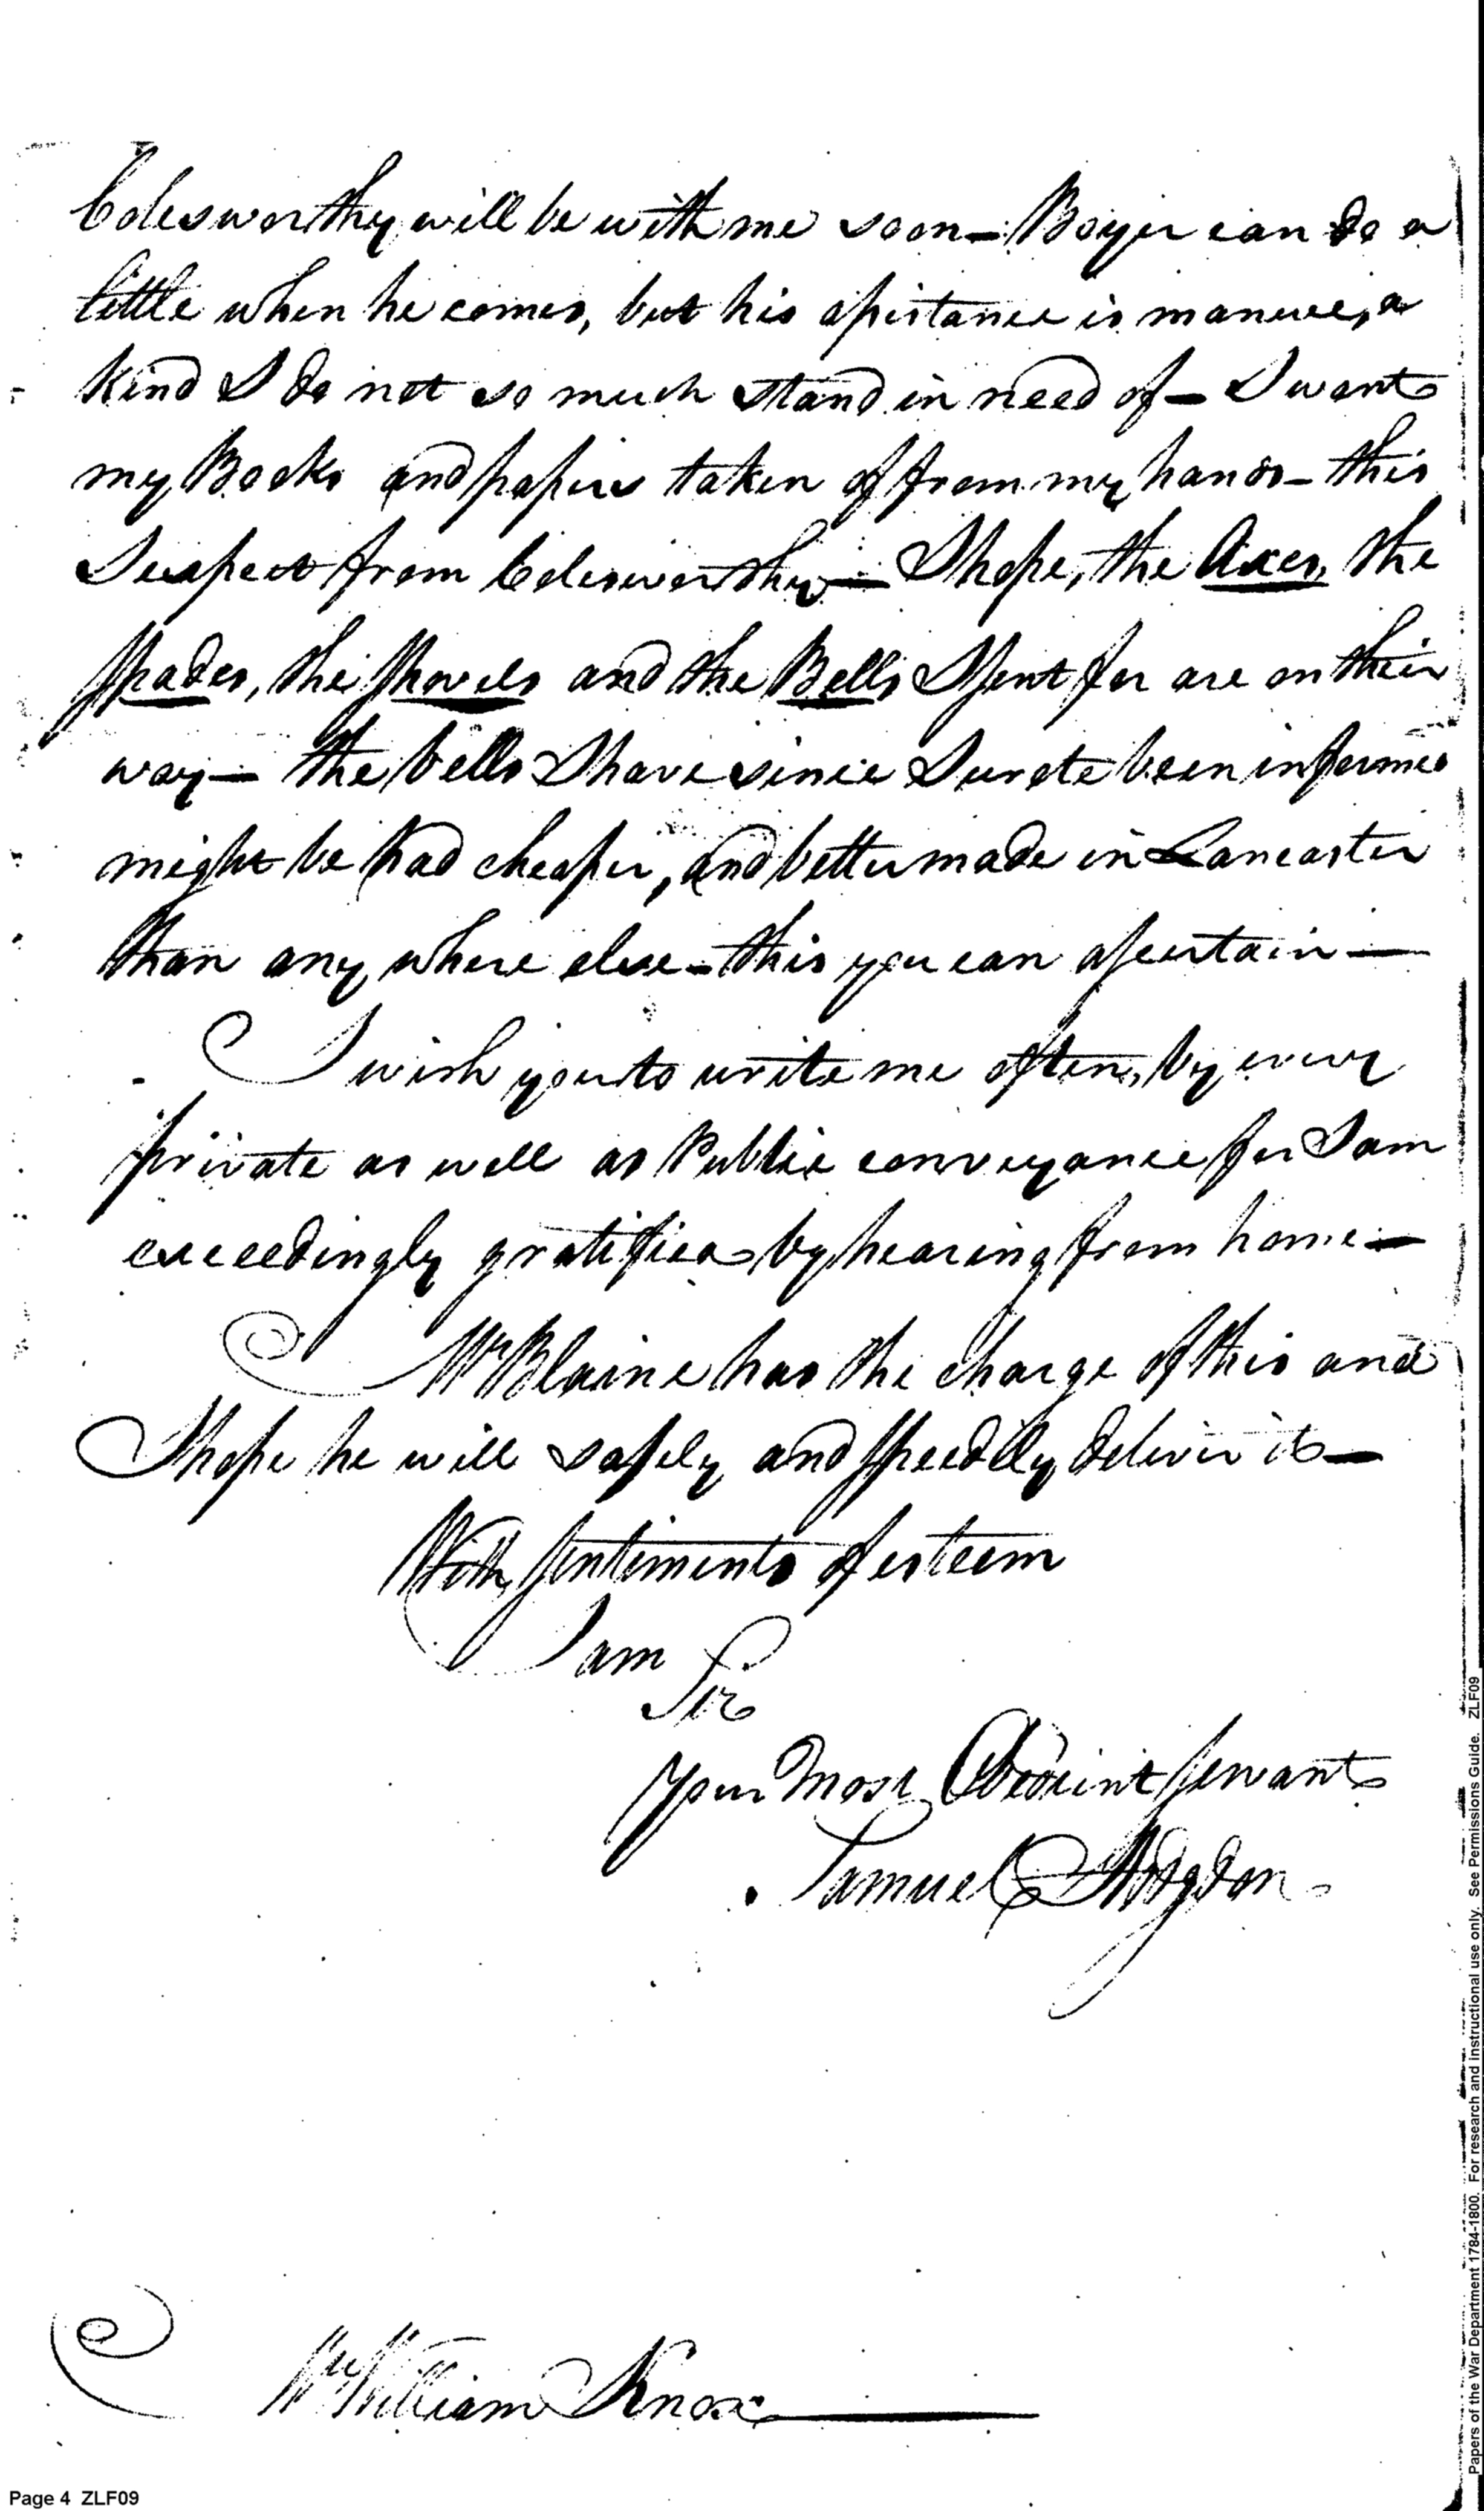 Colesworthy will be with me soon — Boyer can do a
little when he comes, but his assistance is manuel, a
kind I do not so much stand in need of — I want
my Books and papers taken of from my hands — this
I expect from Colesworthy — I hope, the Axes, the
Spades, the Shovels and the Bells I sent for are on their
way — the bells I have since I wrote been informed
might be had cheaper, and better made in Lancaster
than any where else — this you can assertain —
I wish you to write me often, by every
private as well as Public conveyance for I am
exceedingly gratified by hearing from home —
Mr Blaine has the charge of this and
I hope he will safely and speedily deliver it —
With Sentiments of esteem
I am
Sir
Your Most Obedient Servant
Samuel Hodgdon
Mr William Knox
Page 4 ZLF09
Papers of the War Department 1784-1800. For research and instructional use only. See Permissions Guide. ZLF09